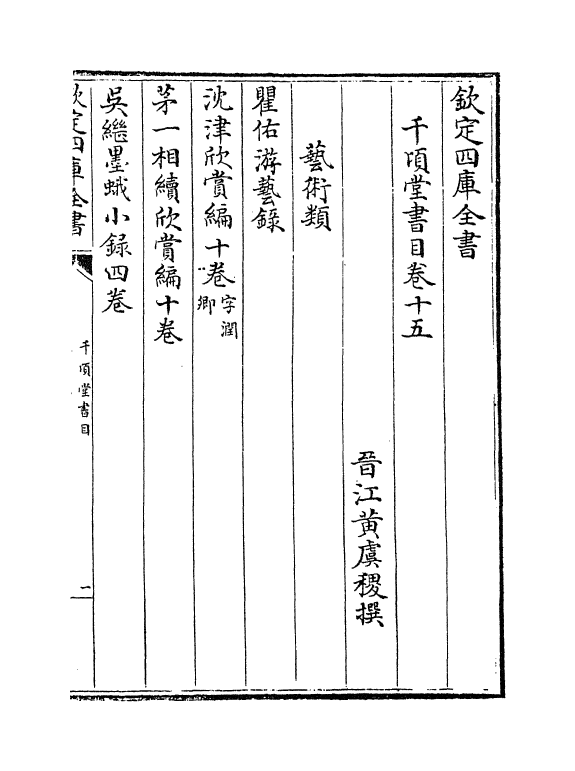 欽定四庫全書
千頃堂書目卷十五
晉江黄虞稷撰
藝術類
瞿佑游藝錄
沈津欣賞編十卷字潤卿
茅一相續欣賞編十卷
吳繼墨蛾小録四卷
欽定四庫全書
千頃堂書目
一